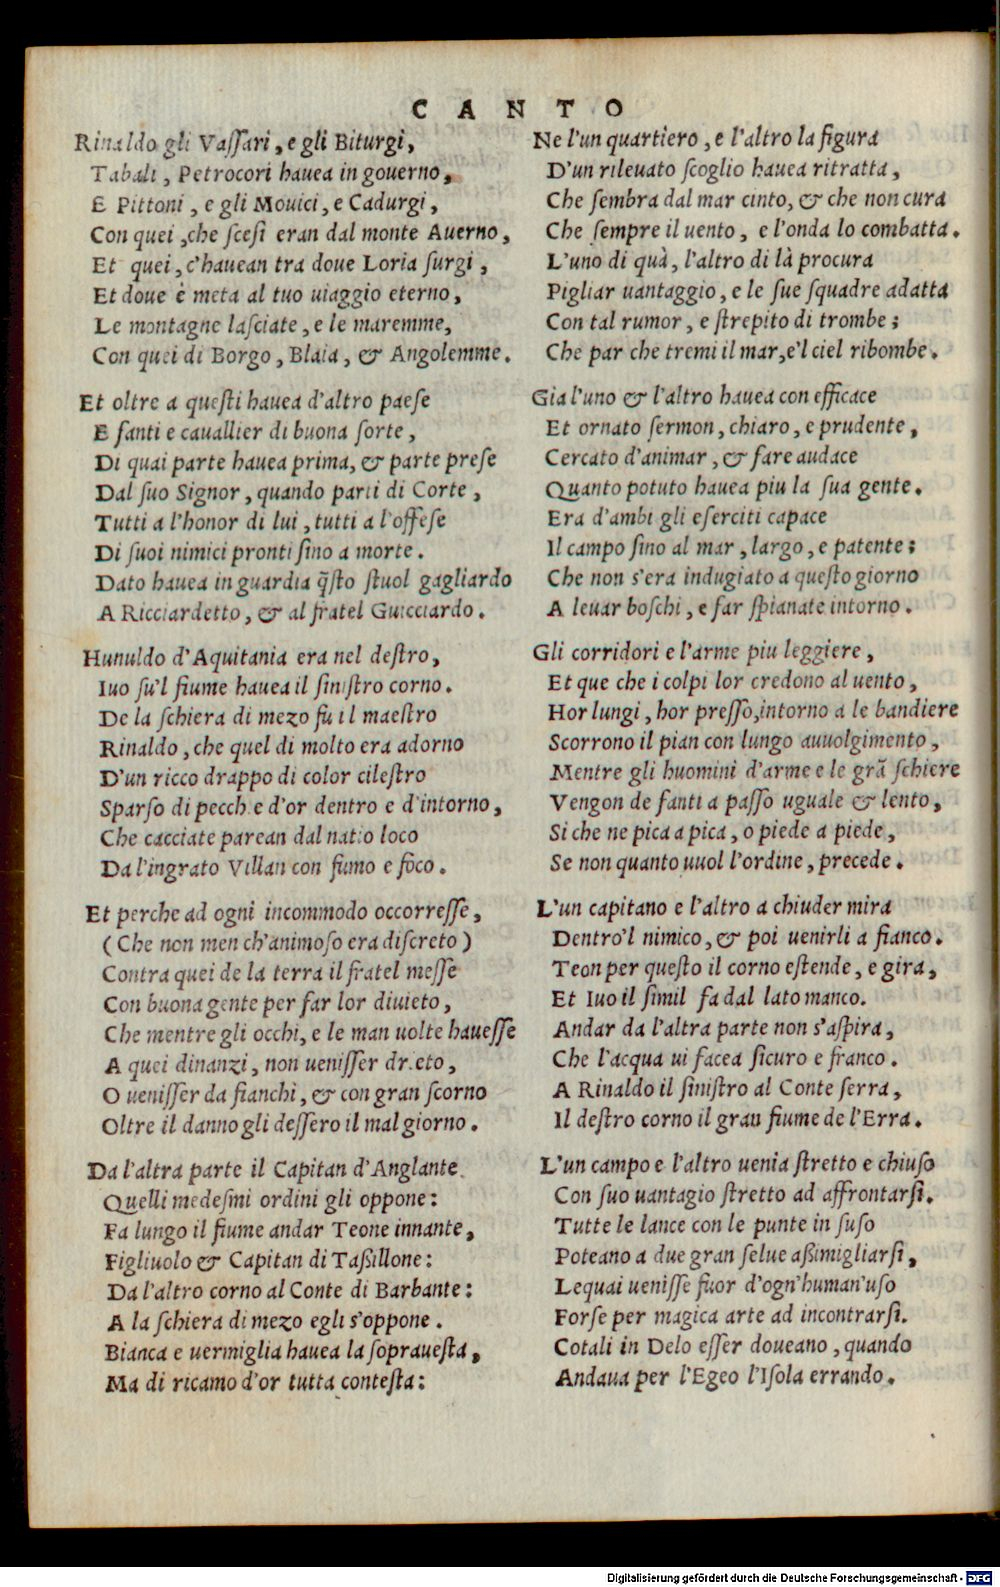 CANTO
Rinaldo gli Vassari, e gli Biturgi,
Tabali, Petrocori hauea in gouerno,
E Pittoni, e gli Mouici, e Cadurgi,
Con quei, che scesi eran dal monte Auerno,
Et quei, c'hauean tra doue Loria surgi,
Et doue è meta al tuo uiaggio eterno,
Le montagne lasciate, e le maremme,
Con quei di Borgo, Blaia, & Angolemme.
Et oltre a questi hauea d'altro paese
E fanti e cauallier di buona sorte,
Di quai parte hauea prima, & parte prese
Dal suo Signor, quando parti di Corte,
Tutti a l'honor di lui, tutti a l'offese
Di suoi nimici pronti sino a morte.
Dato hauea in guardia q̃sto stuol gagliardo
A Ricciardetto, & al fratel Guicciardo.
Hunuldo d'Aquitania era nel destro,
Iuo su'l fiume hauea il sinistro corno.
De la schiera di mezo fu il maestro
Rinaldo, che quel di molto era adorno
D'un ricco drappo di color cilestro
Sparso di pecchie d'or dentro e d'intorno,
Che cacciate parean dal natio loco
Da l'ingrato Villan con fumo e foco.
Et perche ad ogni incommodo occorresse,
(Che non men ch'animoso era discreto)
Contra quei de la terra il fratel messe
Con buona gente per far lor diuieto,
Che mentre gli occhi, e le man uolte hauesse
A quei dinanzi, non uenisser drieto,
O uenisser da fianchi, & con gran scorno
Oltre il danno gli dessero il mal giorno.
Da l'altra parte il Capitan d'Anglante
Quelli medesmi ordini gli oppone:
Fa lungo il fiume andar Teone innante,
Figliuolo & Capitan di Taßillone:
Da l'altro corno al Conte di Barbante:
A la schiera di mezo egli s'oppone.
Bianca e uermiglia hauea la soprauesta,
Ma di ricamo d'or tutta contesta:
Ne l'un quartiero, e l'altro la figura
D'un rileuato scoglio hauea ritratta,
Che sembra dal mar cinto, & che non cura
Che sempre il uento, e l'onda lo combatta.
L'uno di quà, l'altro di là procura
Pigliar uantaggio, e le sue squadre adatta
Con tal rumor, e strepito di trombe;
Che par che tremi il mar, e'l ciel ribombe.
Gia l'uno & l'altro hauea con efficace
Et ornato sermon, chiaro, e prudente,
Cercato d'animar, & fare audace
Quanto potuto hauea piu la sua gente.
Era d'ambi gli eserciti capace
Il campo sino al mar, largo, e patente;
Che non s'era indugiato a questo giorno
A leuar boschi, e far spianate intorno.
Gli corridori e l'arme piu leggiere,
Et que che i colpi lor credono al uento,
Hor lungi, hor presso, intorno a le bandiere
Scorrono il pian con lungo auuolgimento,
Mentre gli huomini d'arme e le grã schiere
Vengon de fanti a passo uguale & lento,
Si che ne pica a pica, o piede a piede,
Se non quanto uuol l'ordine, precede.
L'un capitano e l'altro a chiuder mira
Dentro'l nimico, & poi uenirli a fianco.
Teon per questo il corno estende, e gira,
Et Iuo il simil fa dal lato manco.
Andar da l'altra parte non s'aspira,
Che l'acqua ui facea sicuro e franco.
A Rinaldo il sinistro al Conte serra,
Il destro corno il gran fiume de l'Erra.
L'un campo e l'altro uenia stretto e chiuso
Con suo uantagio stretto ad affrontarsi.
Tutte le lance con le punte in suso
Poteano a due gran selue aßimigliarsi,
Lequai uenisse fuor d'ogn'human'uso
Forse per magica arte ad incontrarsi.
Cotali in Delo esser doueano, quando
Andaua per l'Egeo l'Isola errando.
Digitalisierung gefördert durch die Deutsche Forschungsgemeinschaft - DFG